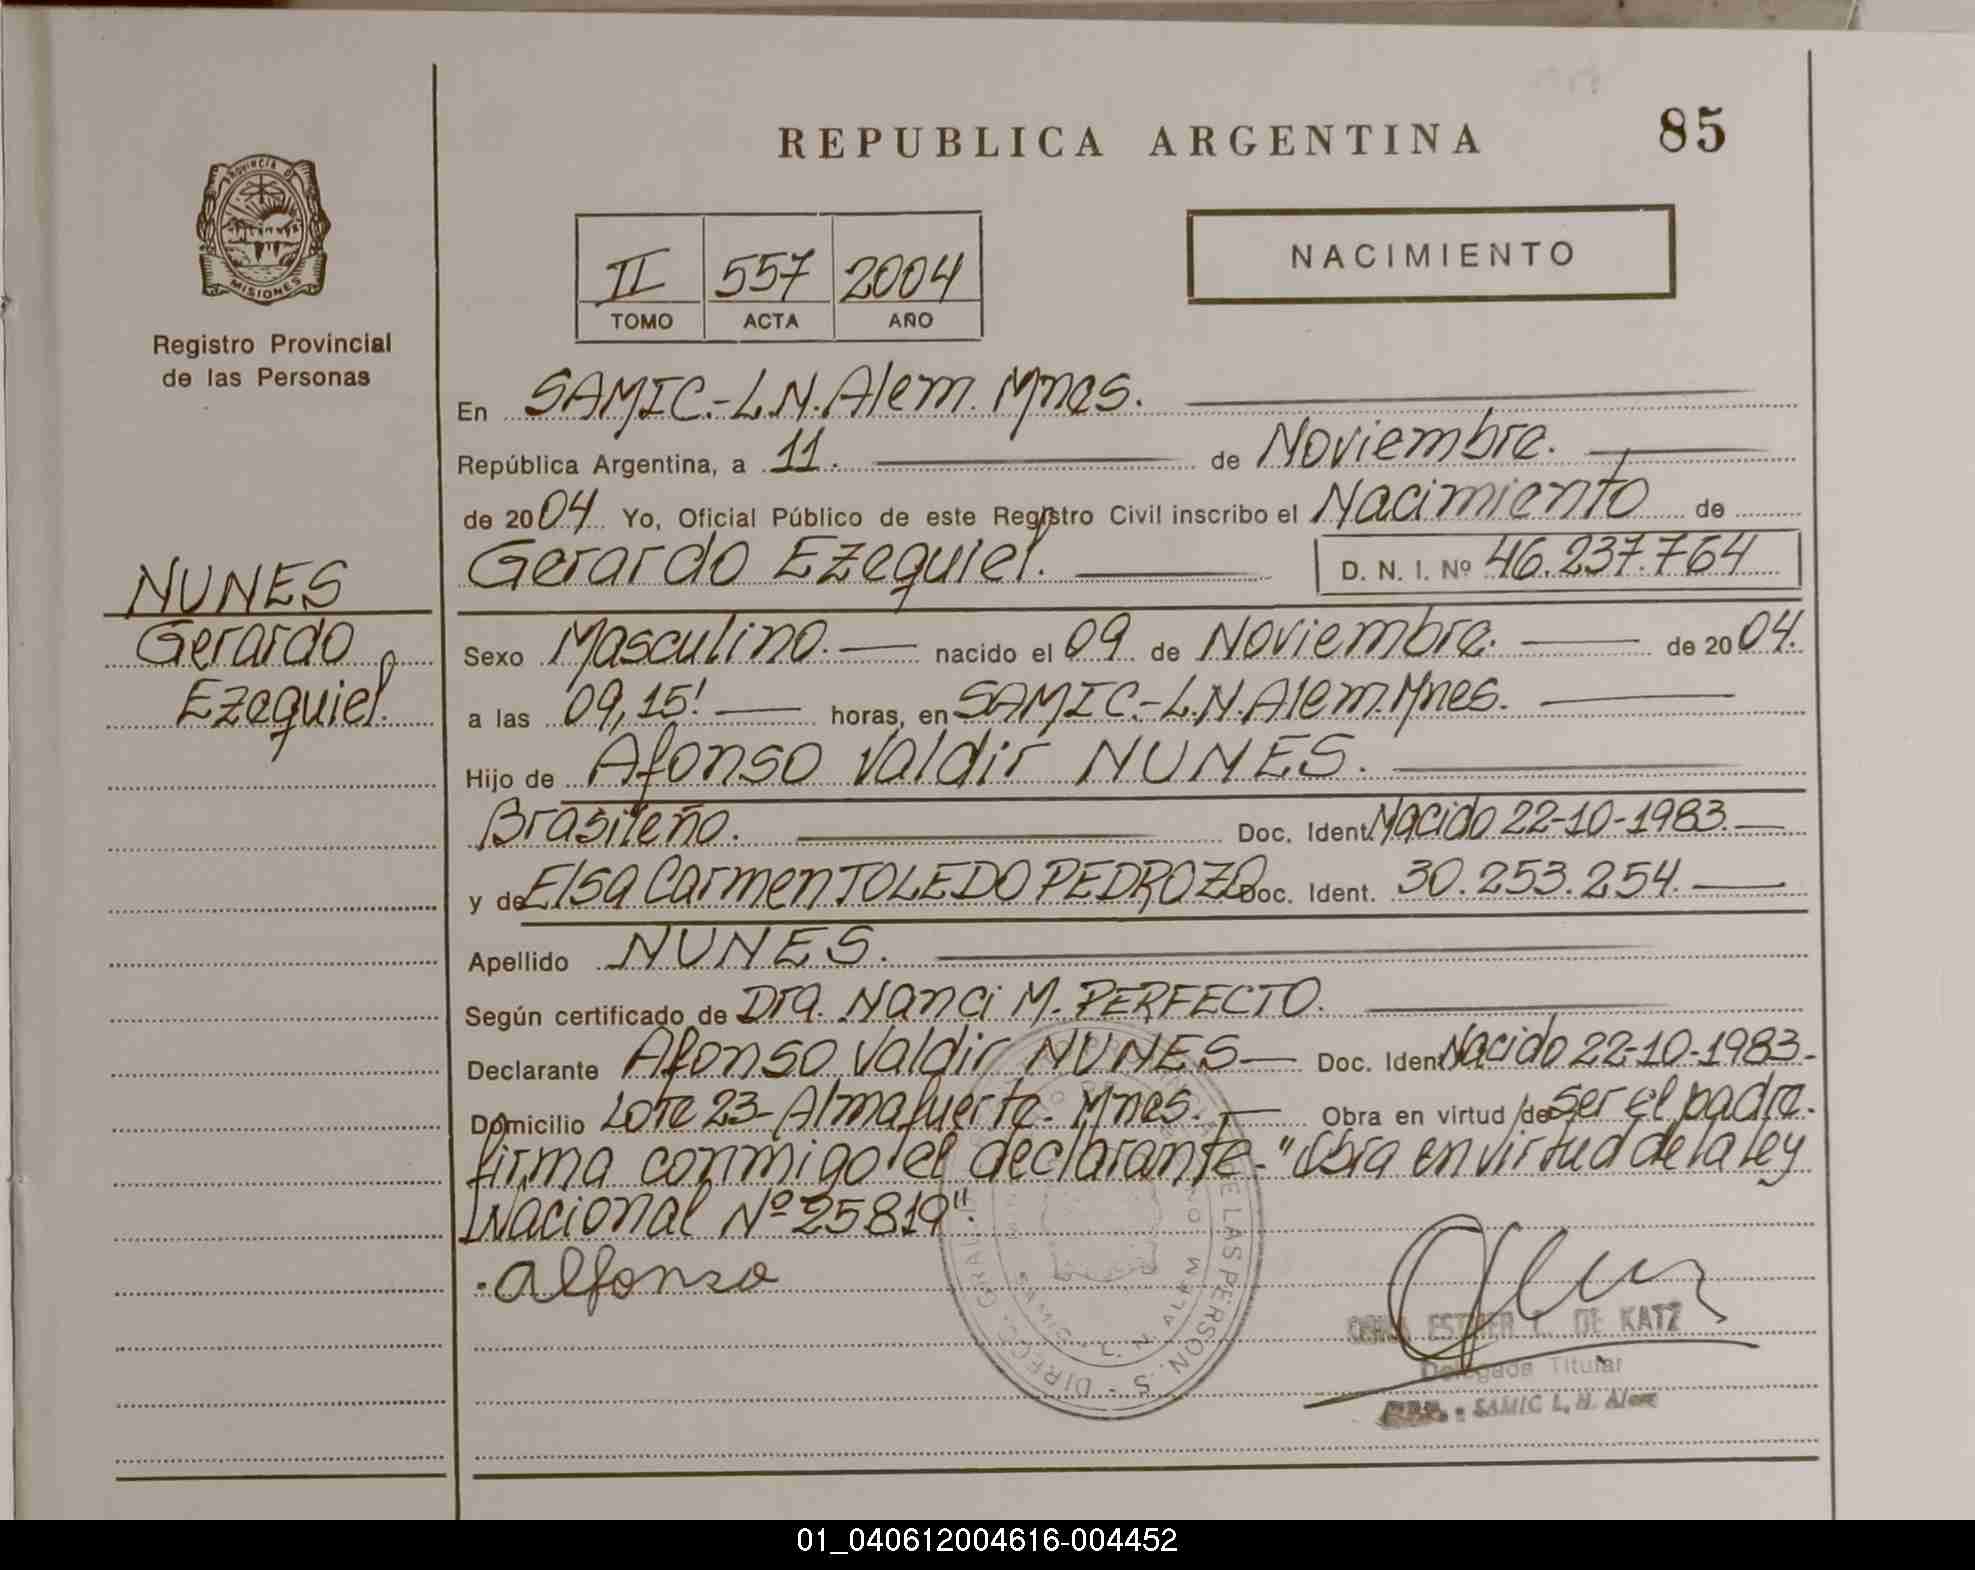 REPUBLICA ARGENTINA
85
PROVINCIA DE
MISIONES
Registro Provincial
de las Personas
II 557 2004
TOMO ACTA AÑO
NACIMIENTO
En SAMIC.-L.N.Alem. Mnes.
República Argentina, a 11. de Noviembre.
de 2004 Yo, Oficial Público de este Registro Civil inscribo el Nacimiento de
Gerardo Ezequiel. D. N. I. Nº 46.237.764
NUNES
Gerardo
Ezequiel.
Sexo Masculino. nacido el 09 de Noviembre. de 2004.
a las 09,15! horas, en SAMIC.-L.N.Alem.Mnes.
Hijo de Afonso Valdir NUNES.
Brasileño. Doc. Ident. Nacido 22-10-1983.
y de Elsa Carmen TOLEDO PEDROZO Doc. Ident. 30.253.254.
Apellido NUNES.
Según certificado de Dra. Nanci M. PERFECTO.
Declarante Afonso Valdir NUNES Doc. Ident. Nacido 22-10-1983.
Domicilio Lote 23-Almafuerte. Mnes. Obra en virtud de ser el padre.
firma conmigo el declarante."Obra en virtud de la ley
Nacional Nº 25819".
Alfonso
DE LAS PERSON.S - DIREC. GRAL.
L. N. ALEM
ESTHER C. DE KATZ
Delegada Titular
SAMIC L. N. Alem
01_040612004616-004452